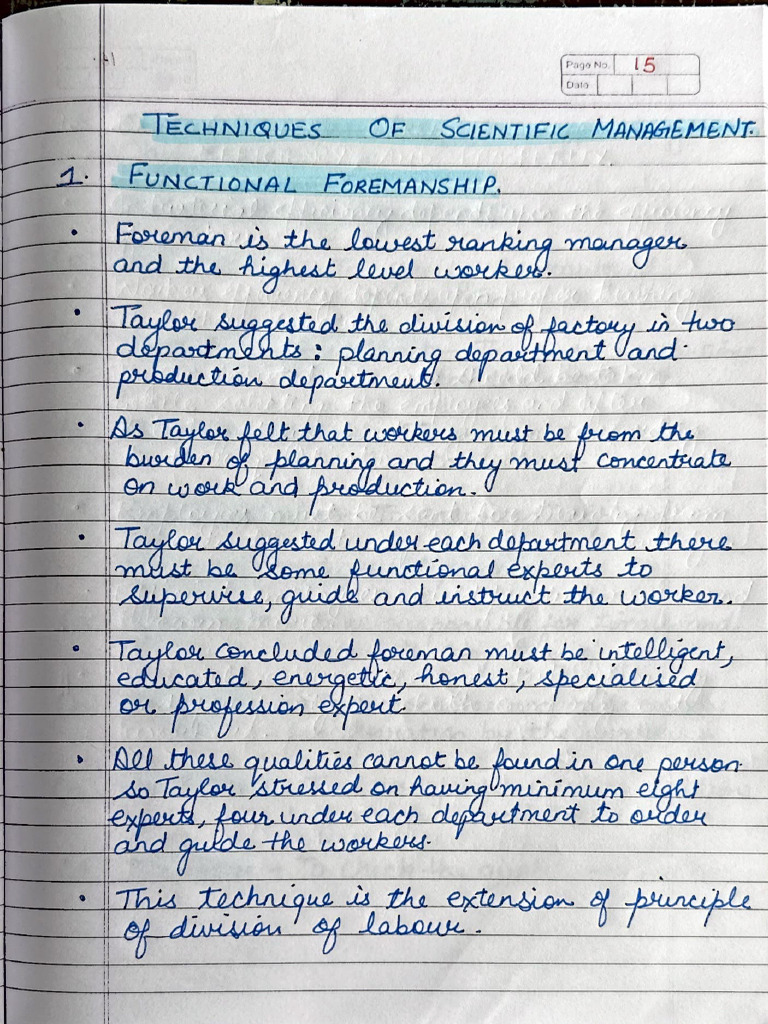 Page No. 15
Date
TECHNIQUES OF SCIENTIFIC MANAGEMENT.
1. FUNCTIONAL FOREMANSHIP.
• Foreman is the lowest ranking manager
and the highest level worker.
• Taylor suggested the division of factory in two
departments : planning department and
production department.
• As Taylor felt that workers must be from the
burden of planning and they must concentrate
on work and production.
• Taylor suggested under each department there
must be some functional experts to
supervise, guide and instruct the worker.
• Taylor concluded foreman must be intelligent,
educated, energetic, honest, specialised
or profession expert.
• All these qualities cannot be found in one person
so Taylor stressed on having minimum eight
experts, four under each department to order
and guide the workers.
• This technique is the extension of principle
of division of labour.